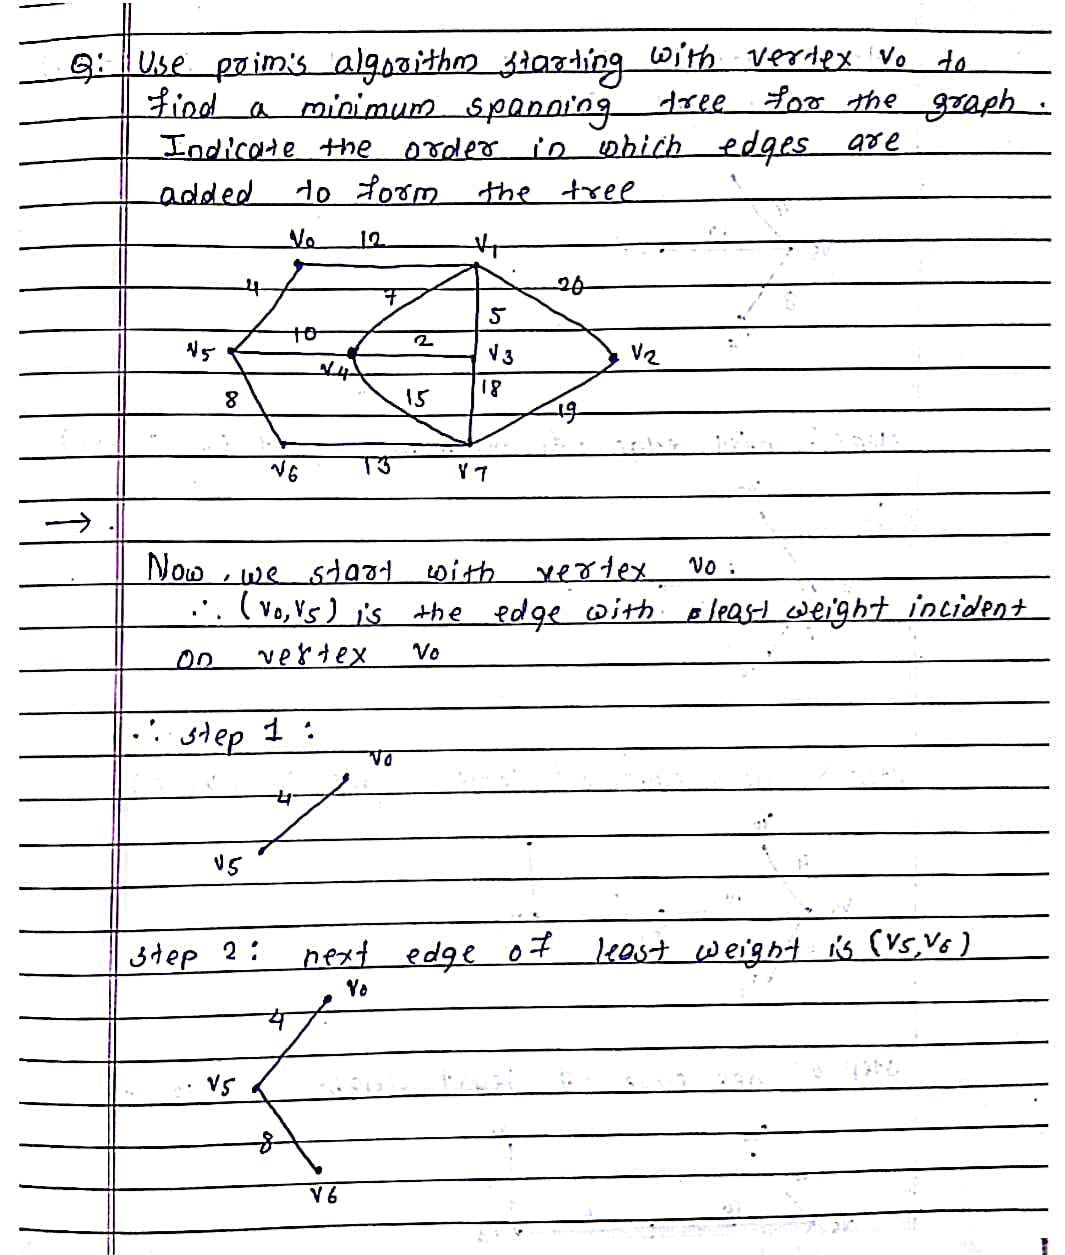 Q: Use prim's algorithm starting with vertex v0 to
find a minimum spanning tree for the graph.
Indicate the order in which edges are
added to form the tree
V0 12 V1
4 7 20
5
10 2
V5 V4 V3 V2
8 15 18
19
V6 13 V7
→
Now, we start with vertex v0.
∴ (V0, V5) is the edge with least weight incident
on vertex V0
∴ step 1 :
V0
4
V5
step 2 : next edge of least weight is (V5, V6)
V0
4
V5
8
V6